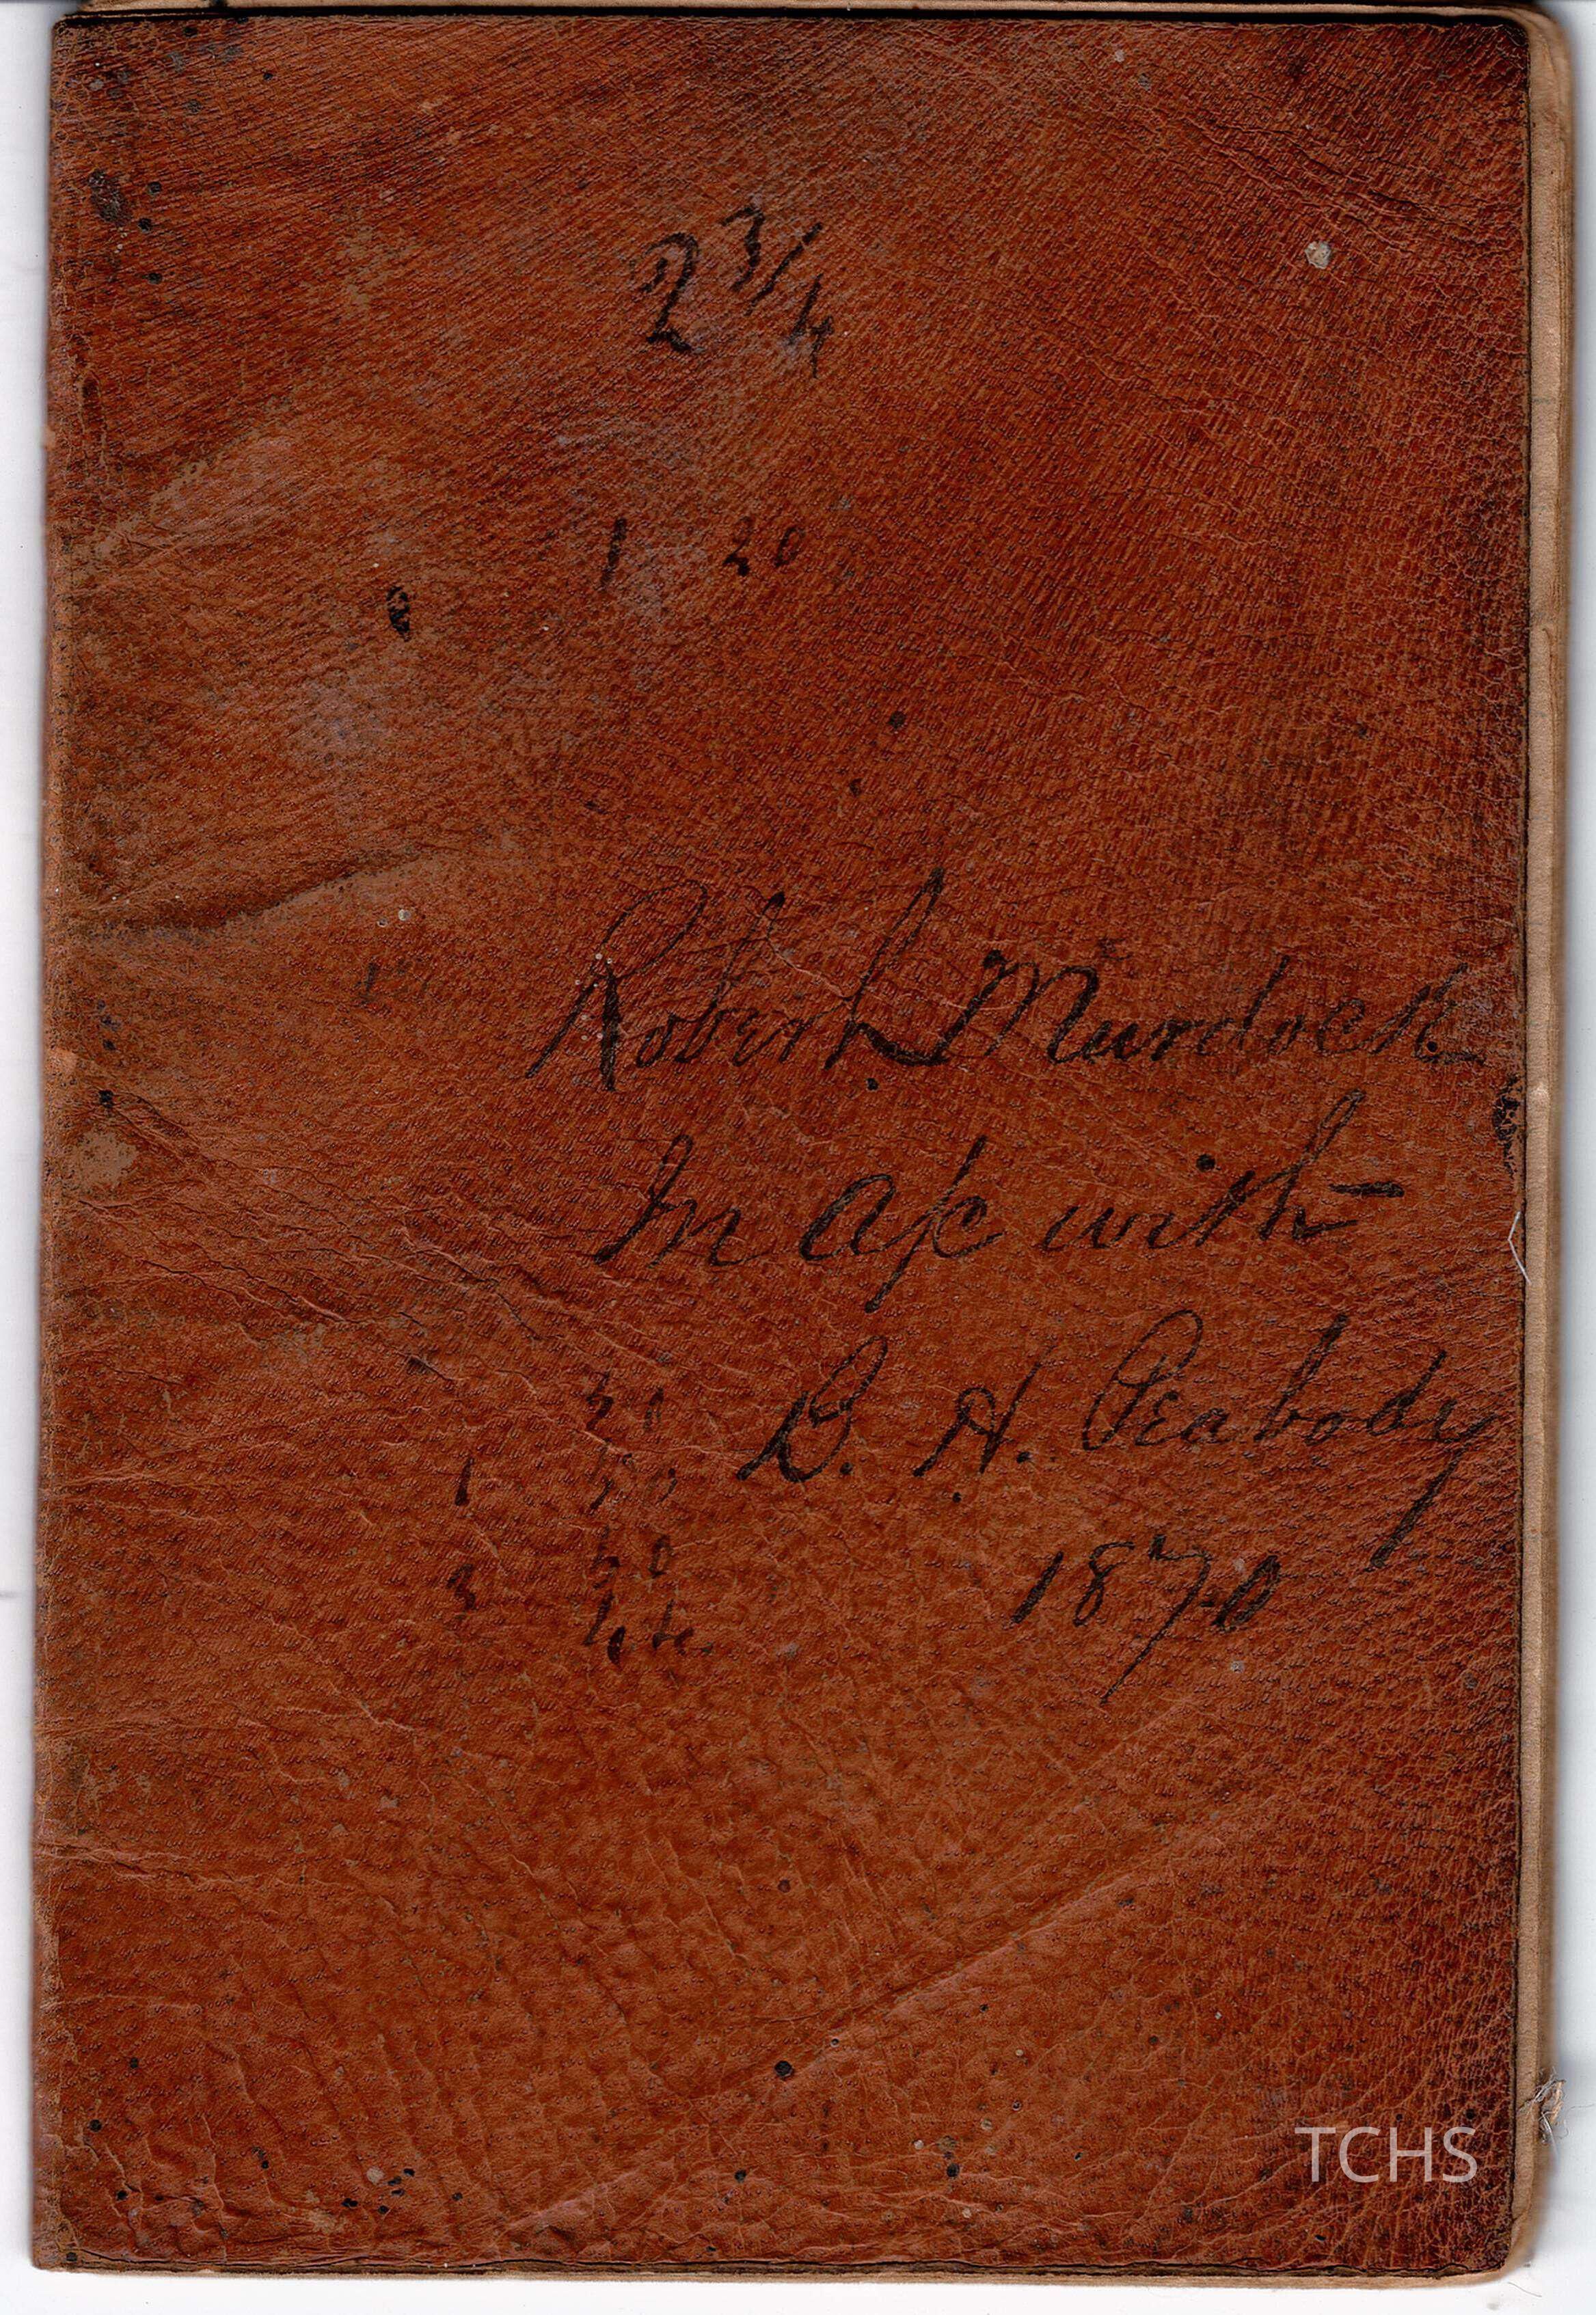 2 3/4
1 20
Robert Murdock
In a/c with
B. H. Peabody
1870
20
1
50
3
TCHS